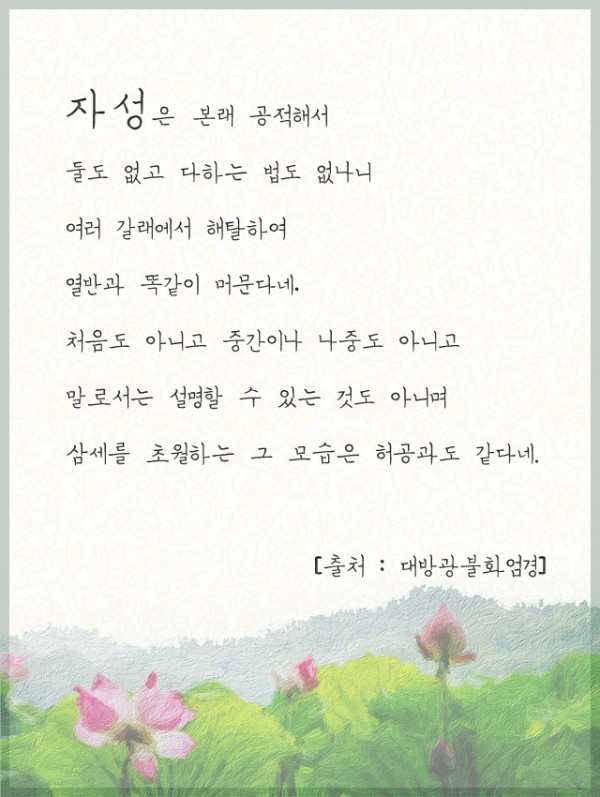 자성은 본래 공적해서
둘도 없고 다하는 법도 없나니
여러 갈래에서 해탈하여
열반과 똑같이 머문다네.
처음도 아니고 중간이나 나중도 아니고
말로서는 설명할 수 있는 것도 아니며
삼세를 초월하는 그 모습은 허공과도 같다네.
[출처 : 대방광불화엄경]